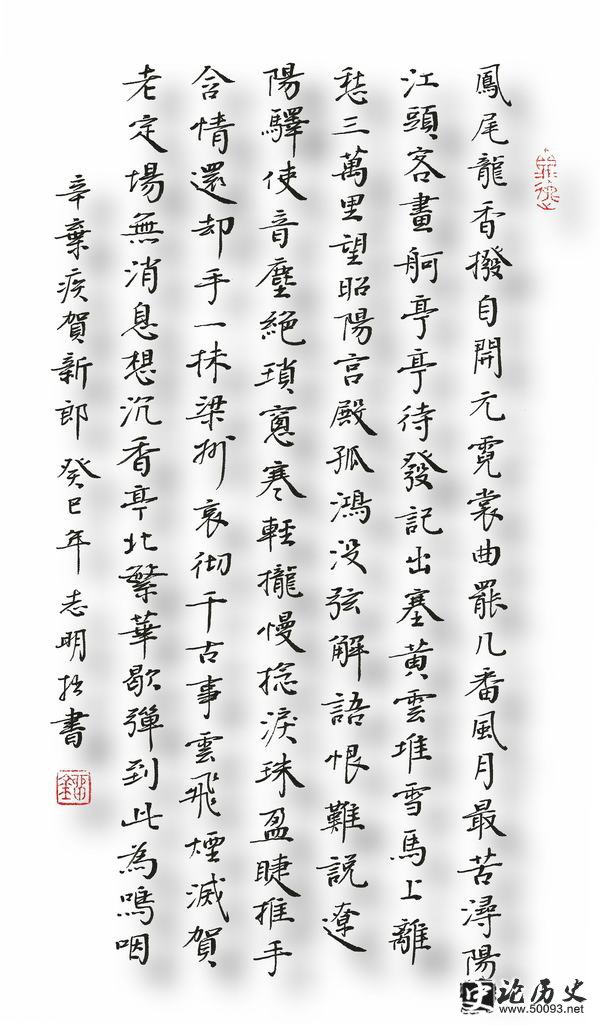 鳳尾龍香撥自開元霓裳曲罷几番風月最苦潯陽
江頭客畫舸亭亭待發記出塞黄雲堆雪馬上離
愁三萬里望昭陽宫殿孤鴻没弦解語恨難説遼
陽驛使音塵絶瑣窻寒輕攏慢捻淚珠盈睫推手
含情還却手一抹梁州哀彻千古事雲飛煙滅賀
老定場無消息想沉香亭北繁華歇彈到此為嗚咽
辛棄疾賀新郎癸巳年志明拙書
史论历史
www.50093.net